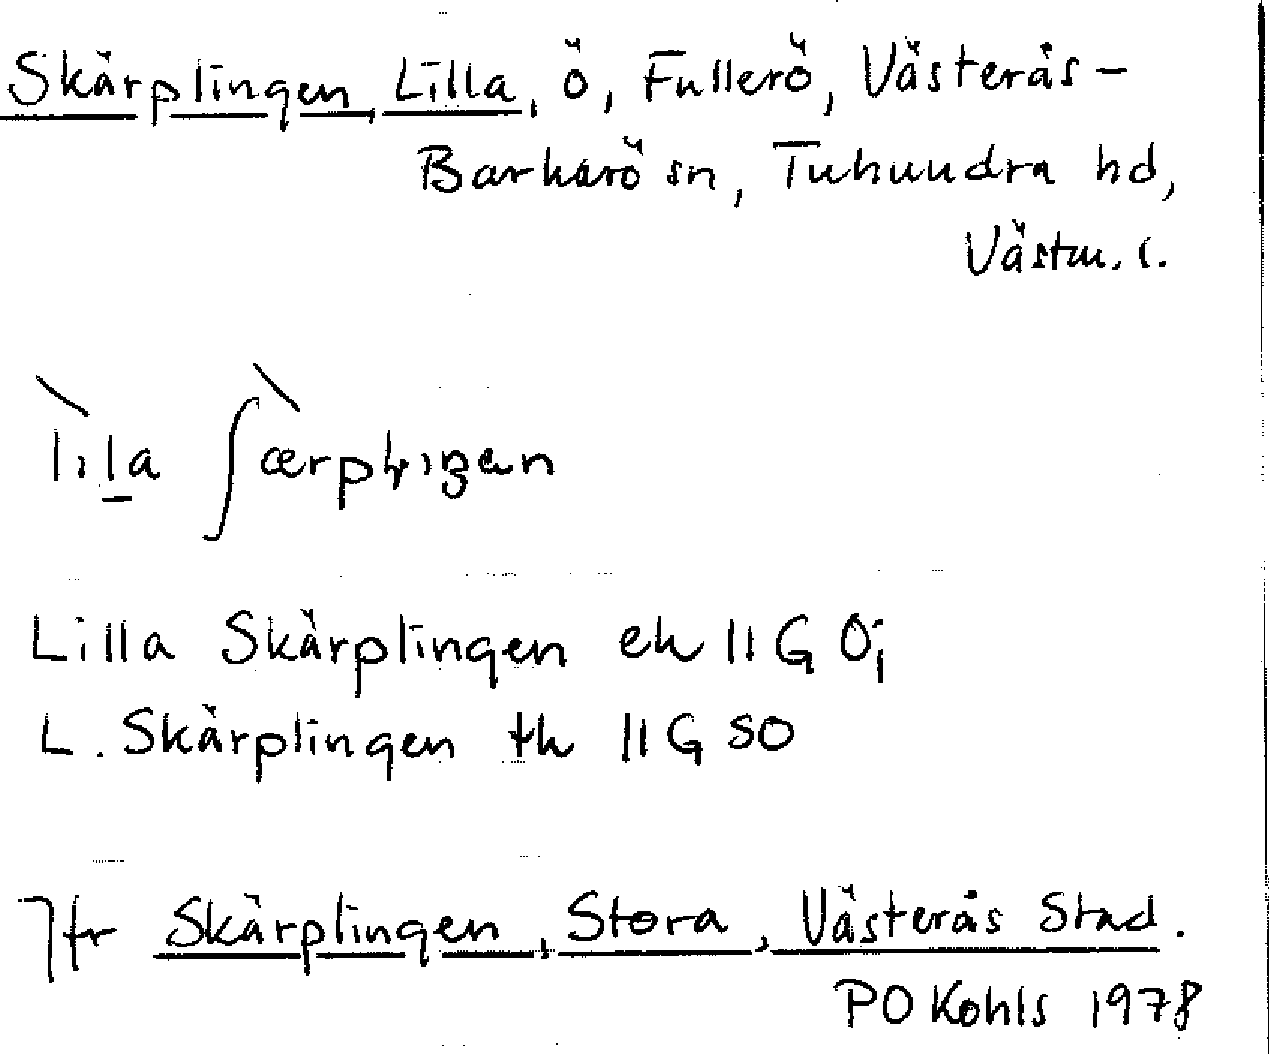 Skärplingen, Lilla, ö, Fullerö, Västerås-
Barkarö sn, Tuhundra hd,
Västm. l.
lila
Lilla Skärplingen ek 11G 0i
L. Skärplingen tk 11G SO
Jfr Skärplingen, Stora, Västerås Stad.
PO Kohls 1978